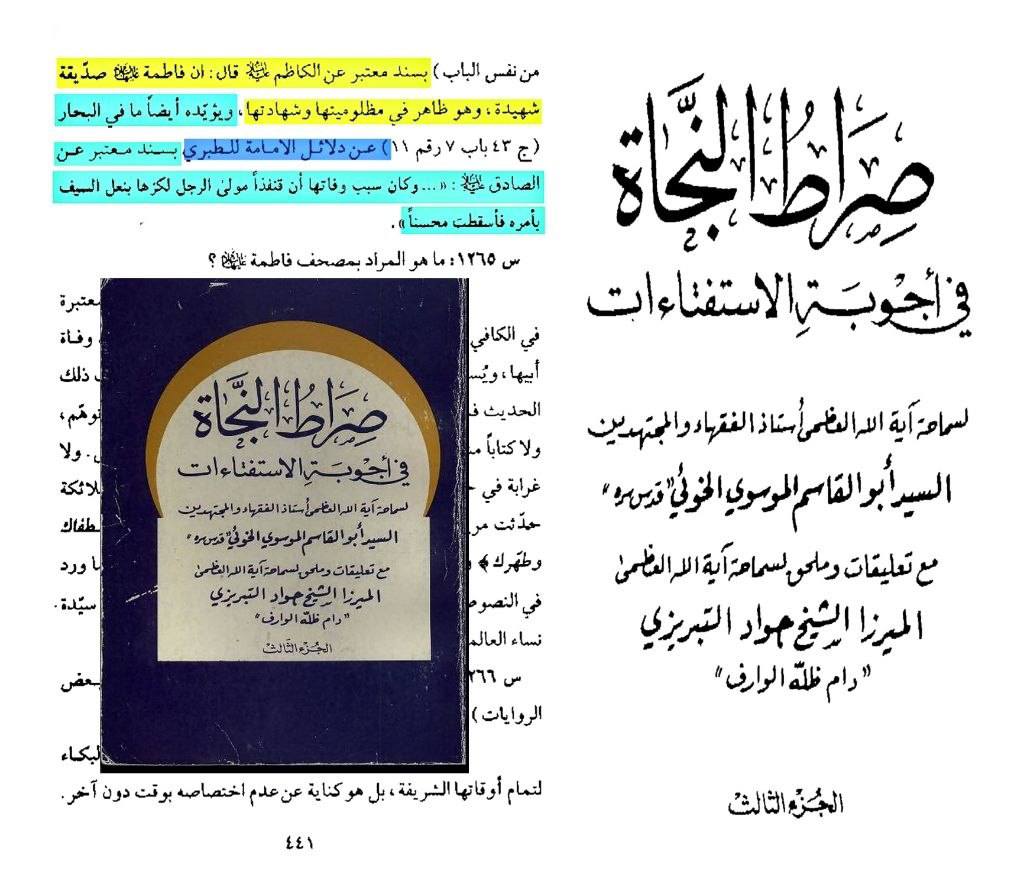 صِرَاطُ النَّجَاة
في أجوبَةِ الاستفتاءات
لسماحة آية الله العظمى أستاذ الفقهاء والمجتهدين
السيد أبو القاسم الموسوي الخوئي "قدس سره"
مع تعليقات وملحق لسماحة آية الله العظمى
الميرزا الشيخ جواد التبريزي
"دام ظلّه الوارف"
الجُزء الثالث
من نفس الباب) بسند معتبر عن الكاظم عليه السلام قال: ان فاطمة عليها السلام صدّيقة
شهيدة، وهو ظاهر في مظلوميتها وشهادتها، ويؤيّده أيضاً ما في البحار
(ج ٤٣ باب ٧ رقم ١١) عن دلائل الامامة للطبري بسند معتبر عن
الصادق عليه السلام: «... وكان سبب وفاتها أن قنفذاً مولىٰ الرجل لكزها بنعل السيف
بأمره فأسقطت محسناً».
س ١٢٦٥: ما هو المراد بمصحف فاطمة عليها السلام؟
معتبرة
في الكافي
وفاة
أبيها، ويُس
ذلك
الحديث ف
توهّم،
ولا كتاباً م
. ولا
غرابة في
لائكة
حدّثت مر
طفاك
وطهّرك﴾ و
ا ورد
في النصوص
سيّدة.
نساء العالم
س ١٢٦٦
بعض
الروايات)
البكاء
لتمام أوقاتها الشريفة، بل هو كناية عن عدم اختصاصه بوقت دون آخر.
٤٤١
صِرَاطُ النَّجَاة
في أجوبَةِ الاستفتاءات
لسماحة آية الله العظمى أستاذ الفقهاء والمجتهدين
السيد أبو القاسم الموسوي الخوئي "قدس سره"
مع تعليقات وملحق لسماحة آية الله العظمى
الميرزا الشيخ جواد التبريزي
"دام ظلّه الوارف"
الجُزء الثَّالث